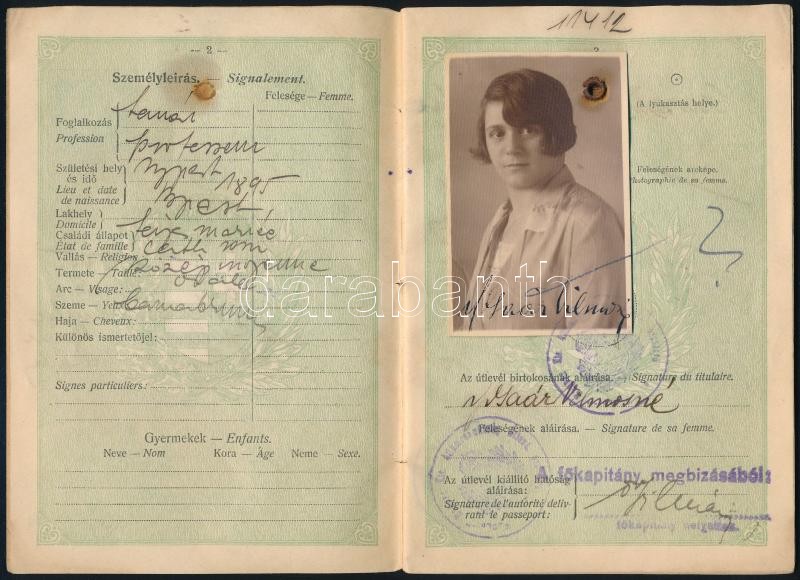 — 2 —
Személyleírás. — Signalement.
Felesége — Femme.
Foglalkozás
Profession
tanár
professeur
Születési hely
és idő
Lieu et date
de naissance
1895
Lakhely
Domicile
Bpest
Családi állapot
État de famille
férj. mariée
Vallás — Religion
cath. rom
Termete — Taille:
közép moyenne
Arc — Visage:
ovale
Szeme — Yeux:
Haja — Cheveux:
Különös ismertetőjel:
Signes particuliers:
Gyermekek — Enfants.
Neve — Nom Kora — Âge Neme — Sexe.
11412
(A lyukasztás helye.)
Feleségének arcképe.
Photographie de sa femme.
?
Gaár Vilmosné
Az útlevél birtokosának aláírása. — Signature du titulaire.
Gaár Vilmosné
Feleségének aláírása. — Signature de sa femme.
A főkapitány megbizásából:
Az útlevél kiállító hatóság
aláírása:
Signature de l'autorité déliv-
rant le passeport:
főkapitány helyettes.
darabanth